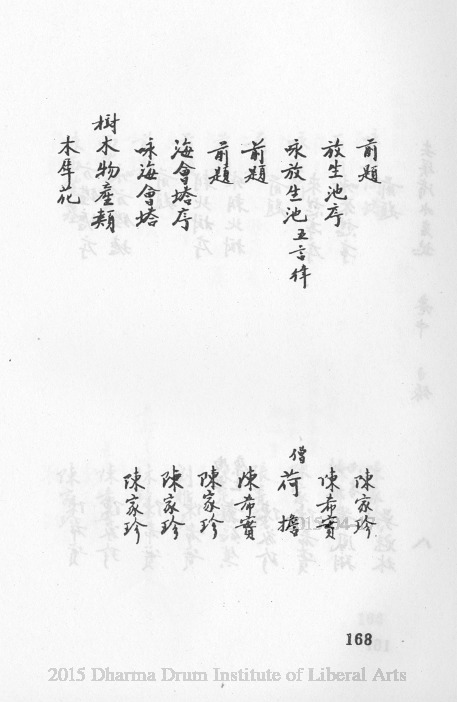 前題 陳家珍
放生池序 陳希實
咏放生池五言律 僧荷擔
前題 陳希實
前題 陳家珍
海會塔序 陳家珍
咏海會塔 陳家珍
樹木物產類
木犀花
168
2015 Dharma Drum Institute of Liberal Arts